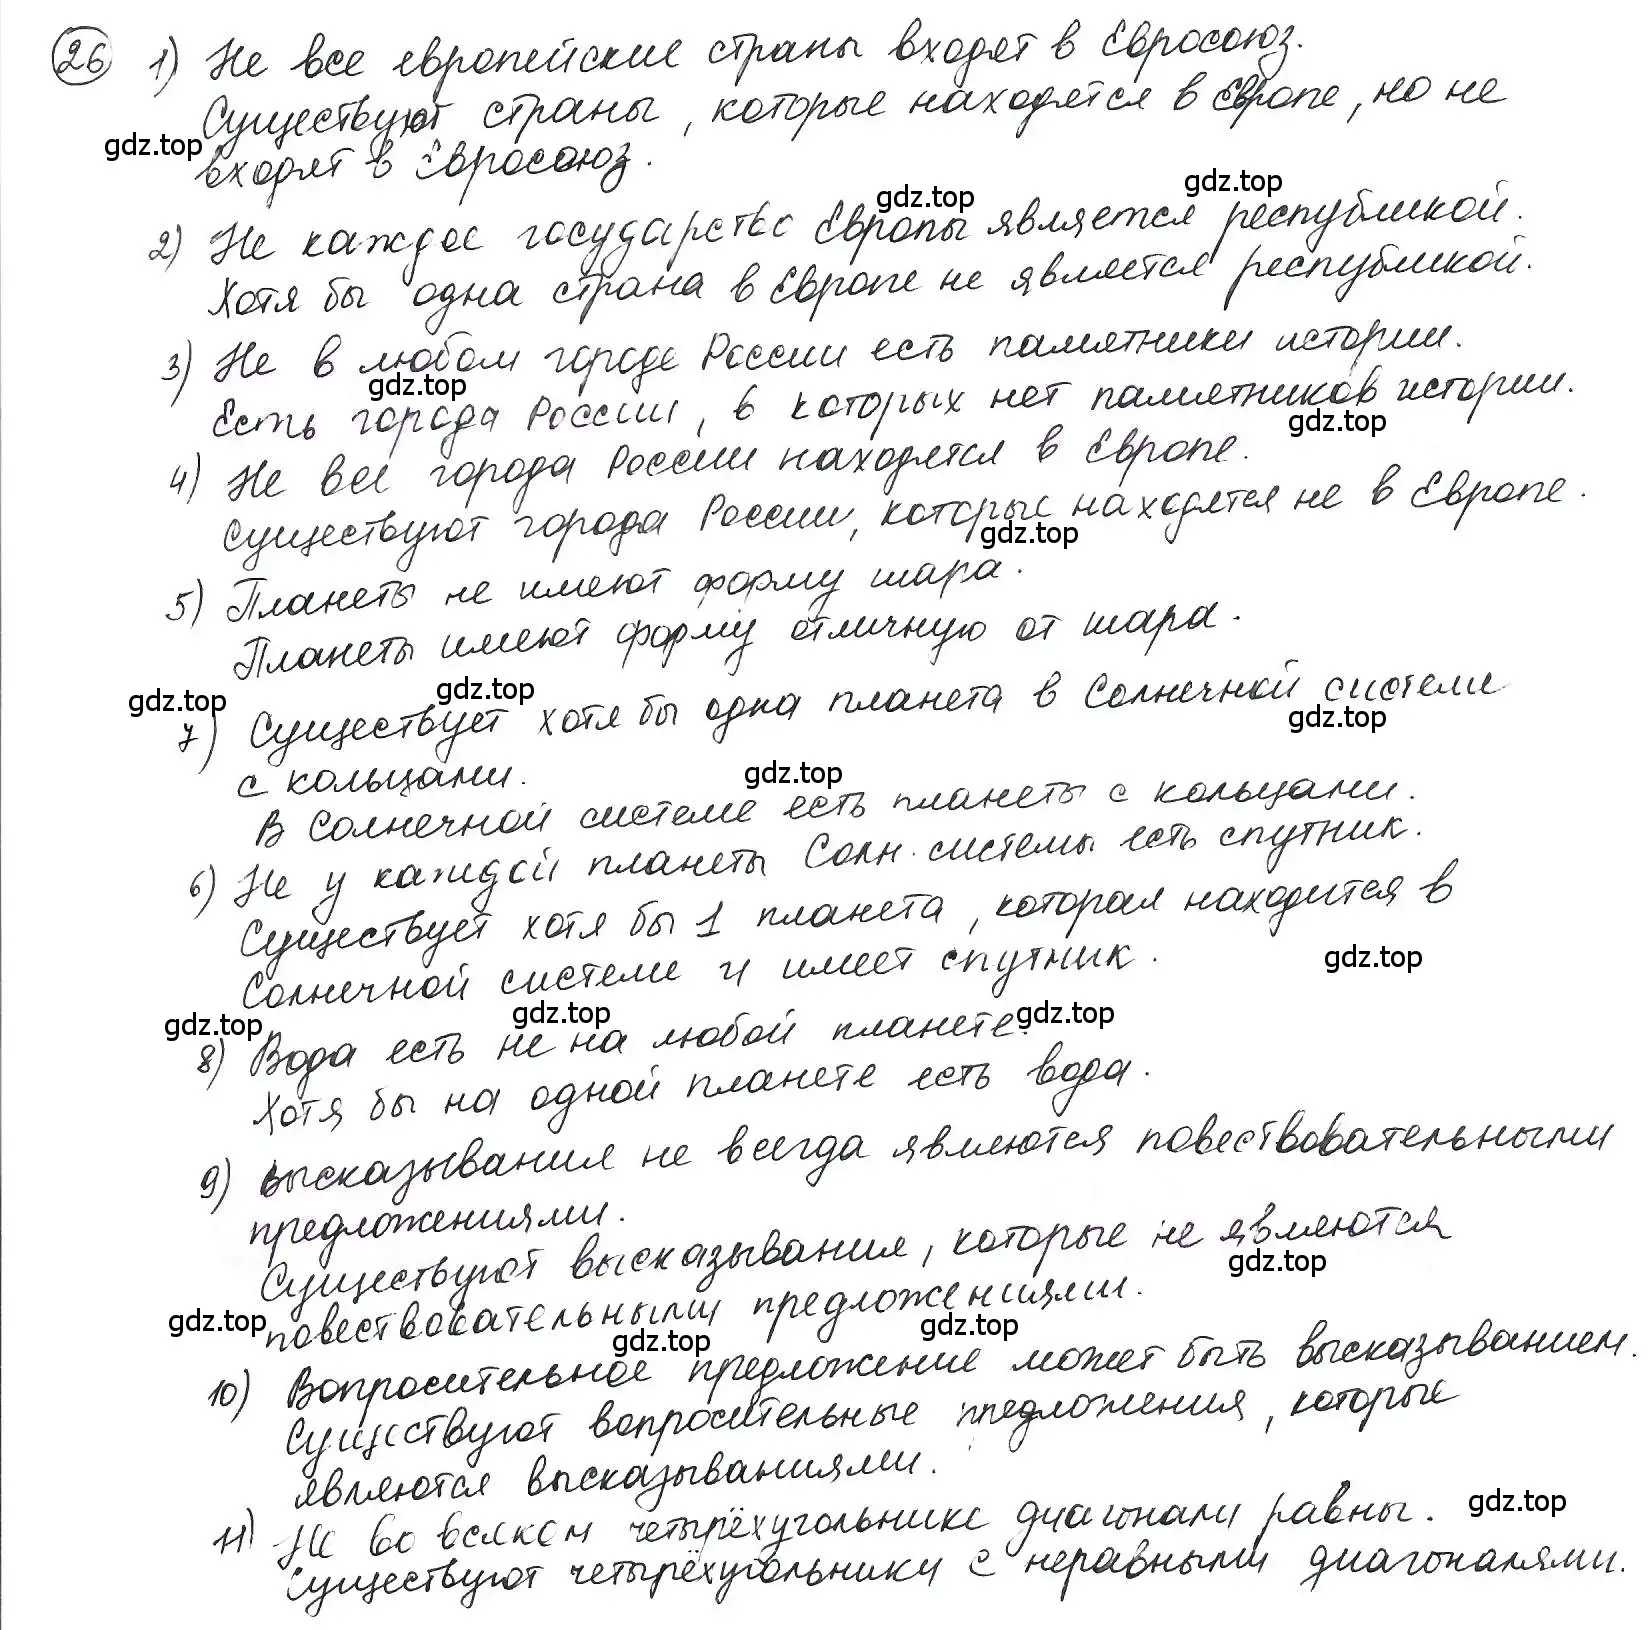 26 1) Не все европейские страны входят в Евросоюз.
Существуют страны, которые находятся в Европе, но не
gdz.top
входят в Евросоюз.
gdz.top gdz.top
2) Не каждое государство Европы является республикой.
Хотя бы одна страна в Европе не является республикой.
3) Не в любом городе России есть памятники истории.
gdz.top
Есть города России, в которых нет памятников истории.
gdz.top
4) Не все города России находятся в Европе.
Существуют города России, которые находятся не в Европе.
gdz.top
5) Планеты не имеют форму шара.
Планеты имеют форму отличную от шара.
gdz.top gdz.top gdz.top
7) Существует хотя бы одна планета в Солнечной системе
с кольцами.
gdz.top
В Солнечной системе есть планеты с кольцами.
6) Не у каждой планеты Солн. системы есть спутник.
Существует хотя бы 1 планета, которая находится в
Солнечной системе и имеет спутник.
gdz.top
gdz.top gdz.top gdz.top
8) Вода есть не на любой планете.
Хотя бы на одной планете есть вода.
9) высказывания не всегда являются повествовательными
предложениями.
Существуют высказывания, которые не являются
gdz.top
повествовательными предложениями.
gdz.top gdz.top gdz.top
10) Вопросительное предложение может быть высказыванием.
Существуют вопросительные предложения, которые
являются высказываниями.
11) Не во всяком четырёхугольнике диагонали равны.
gdz.top
Существуют четырёхугольники с неравными диагоналями.